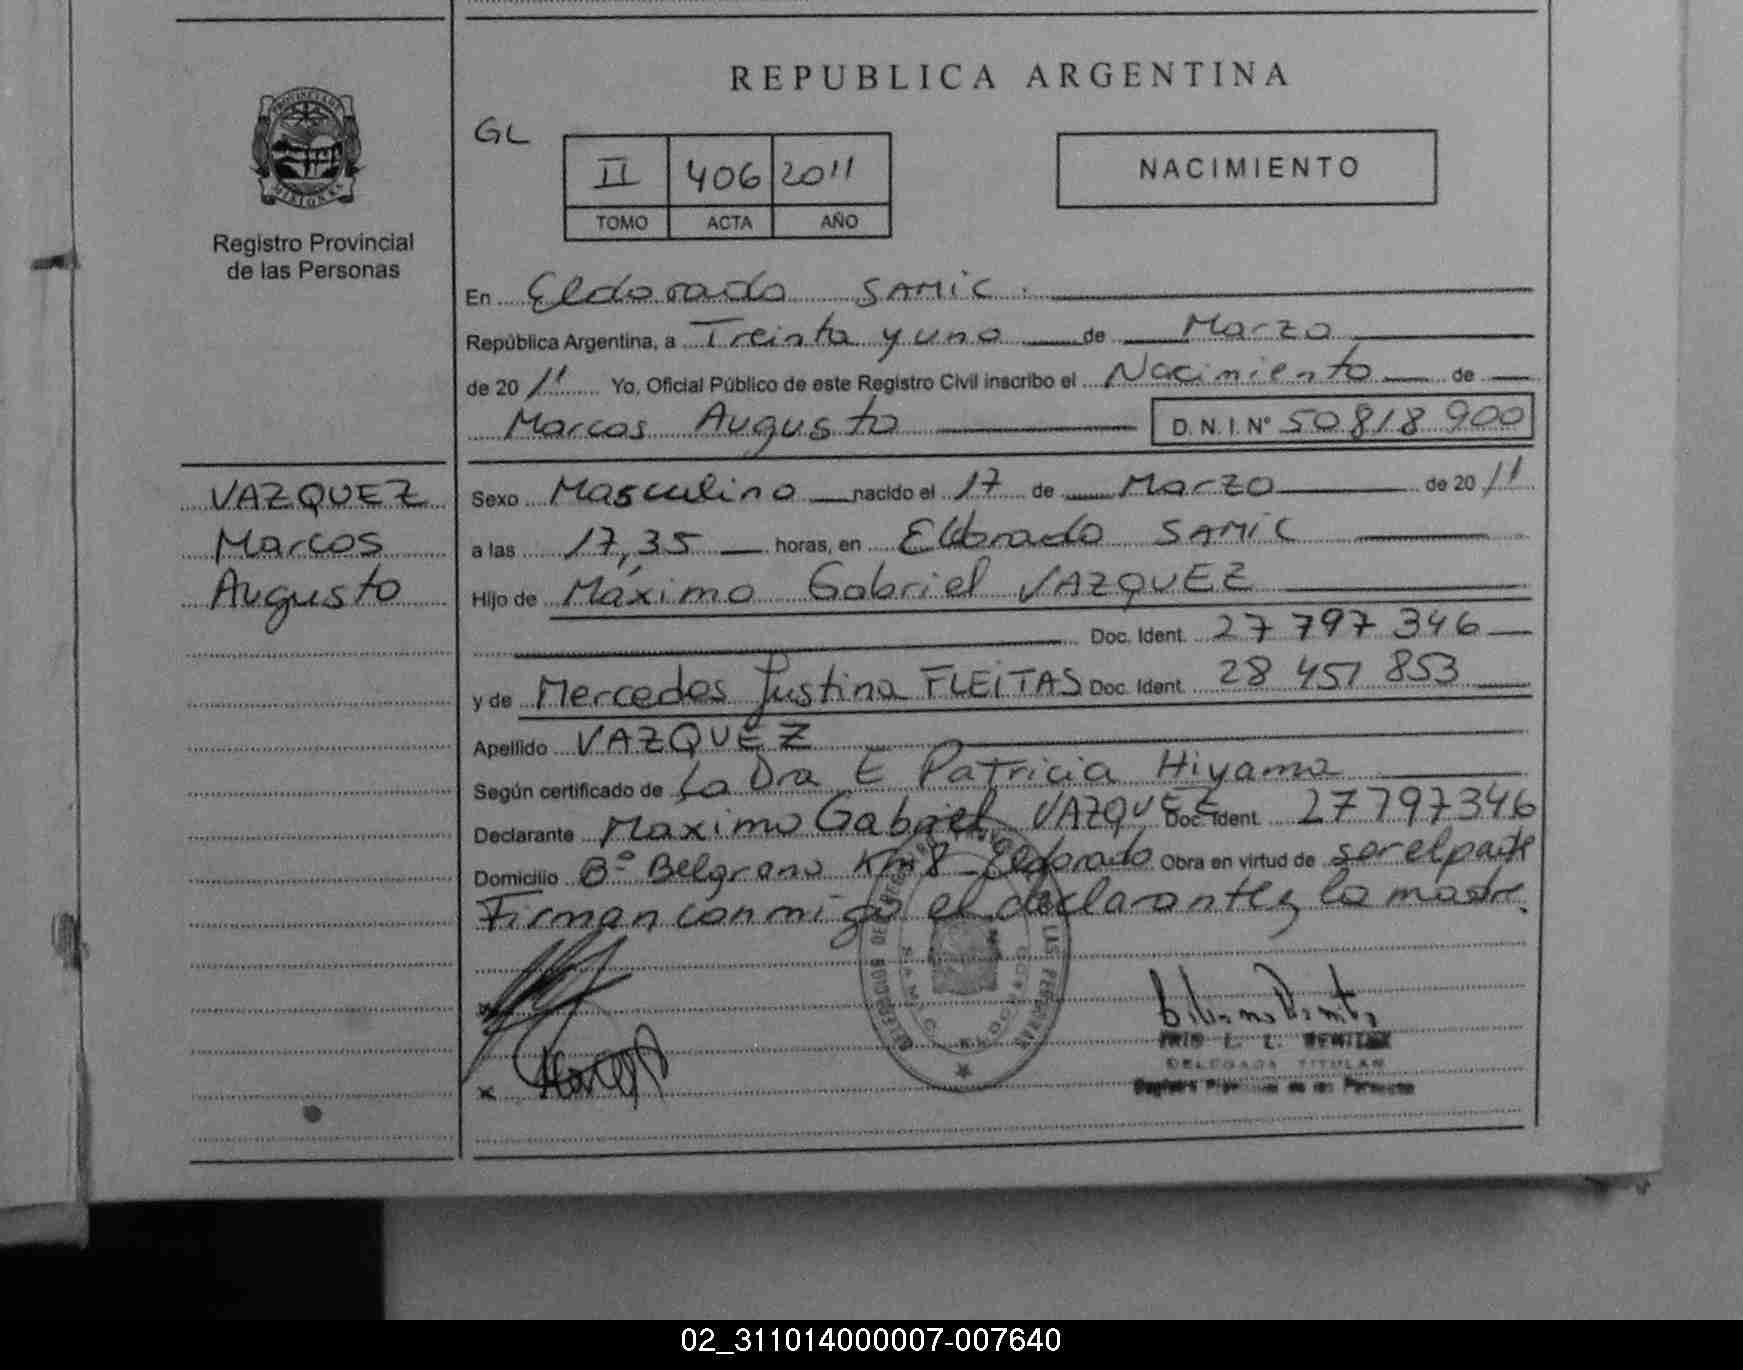 REPUBLICA ARGENTINA
PROVINCIA DE
MISIONES
Registro Provincial
de las Personas
GL
II 406 2011
TOMO ACTA AÑO
NACIMIENTO
En Eldorado SAMIC.
República Argentina, a Treinta y uno de Marzo
de 20 11 Yo, Oficial Público de este Registro Civil inscribo el Nacimiento de
Marcos Augusto D.N.I. Nº 50 818 900
VAZQUEZ
Marcos
Augusto
Sexo Masculino nacido el 17 de Marzo de 20 11
a las 17,35 horas, en Eldorado SAMIC
Hijo de Máximo Gabriel VAZQUEZ
Doc. Ident. 27 797 346
y de Mercedes Justina FLEITAS Doc. Ident. 28 451 853
Apellido VAZQUEZ
Según certificado de La Dra E Patricia Hiyama
Declarante Maximo Gabriel VAZQUEZ Doc. Ident. 27797346
Domicilio Bº Belgrano Km 8 Eldorado Obra en virtud de ser el padre
Firman conmigo el declarante y la madre.
LAS PERSONAS
DELEGADA TITULAR
02_311014000007-007640